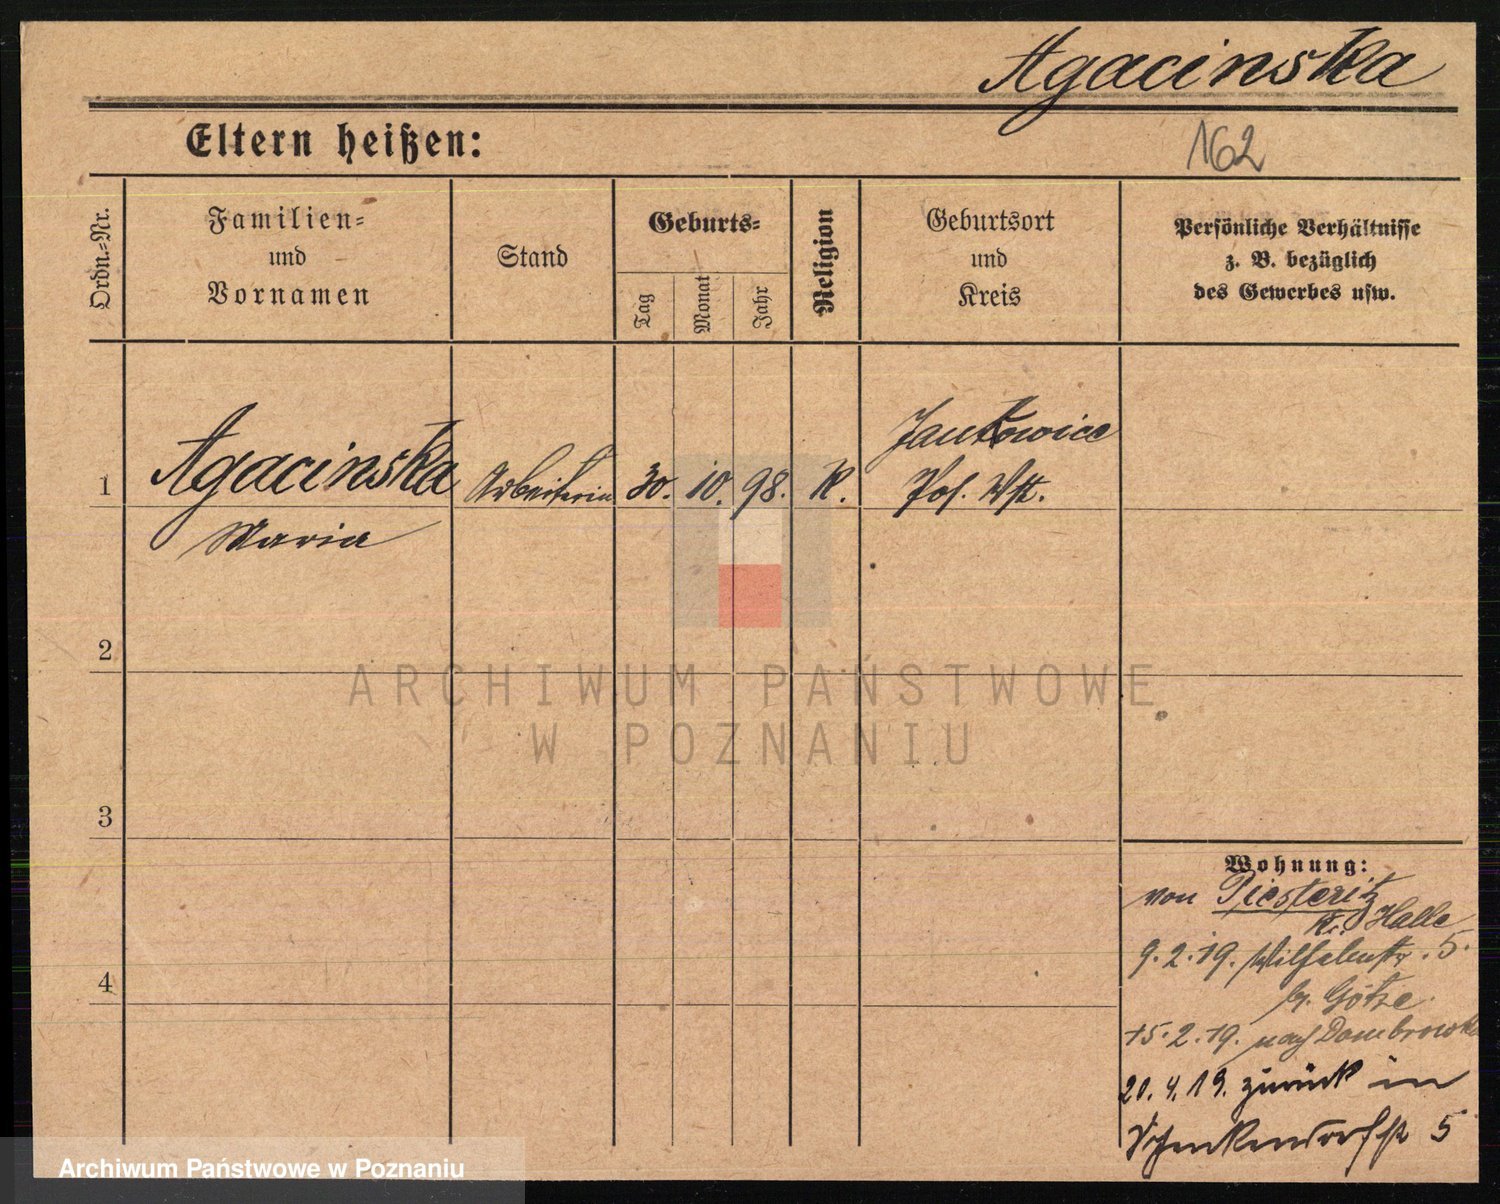 Agacinska
Eltern heißen:
162
Ordn.=Nr.
Familien=
und
Vornamen
Stand
Geburts=
Tag
Monat
Jahr
Religion
Geburtsort
und
Kreis
Persönliche Verhältnisse
z. B. bezüglich
des Gewerbes usw.
1
Agacinska
Maria
Arbeiterin
30.
10.
98.
K.
Jankowice
Pos. Wst.
2
3
4
Wohnung:
von Piesteritz
Kr. Halle
9.2.19. Wilhelmstr. 5.
b. Götze.
15.2.19. nach Dombrowka
20.4.19. zurück in
Schenkendorfstr 5
ARCHIWUM PAŃSTWOWE
W POZNANIU
Archiwum Państwowe w Poznaniu